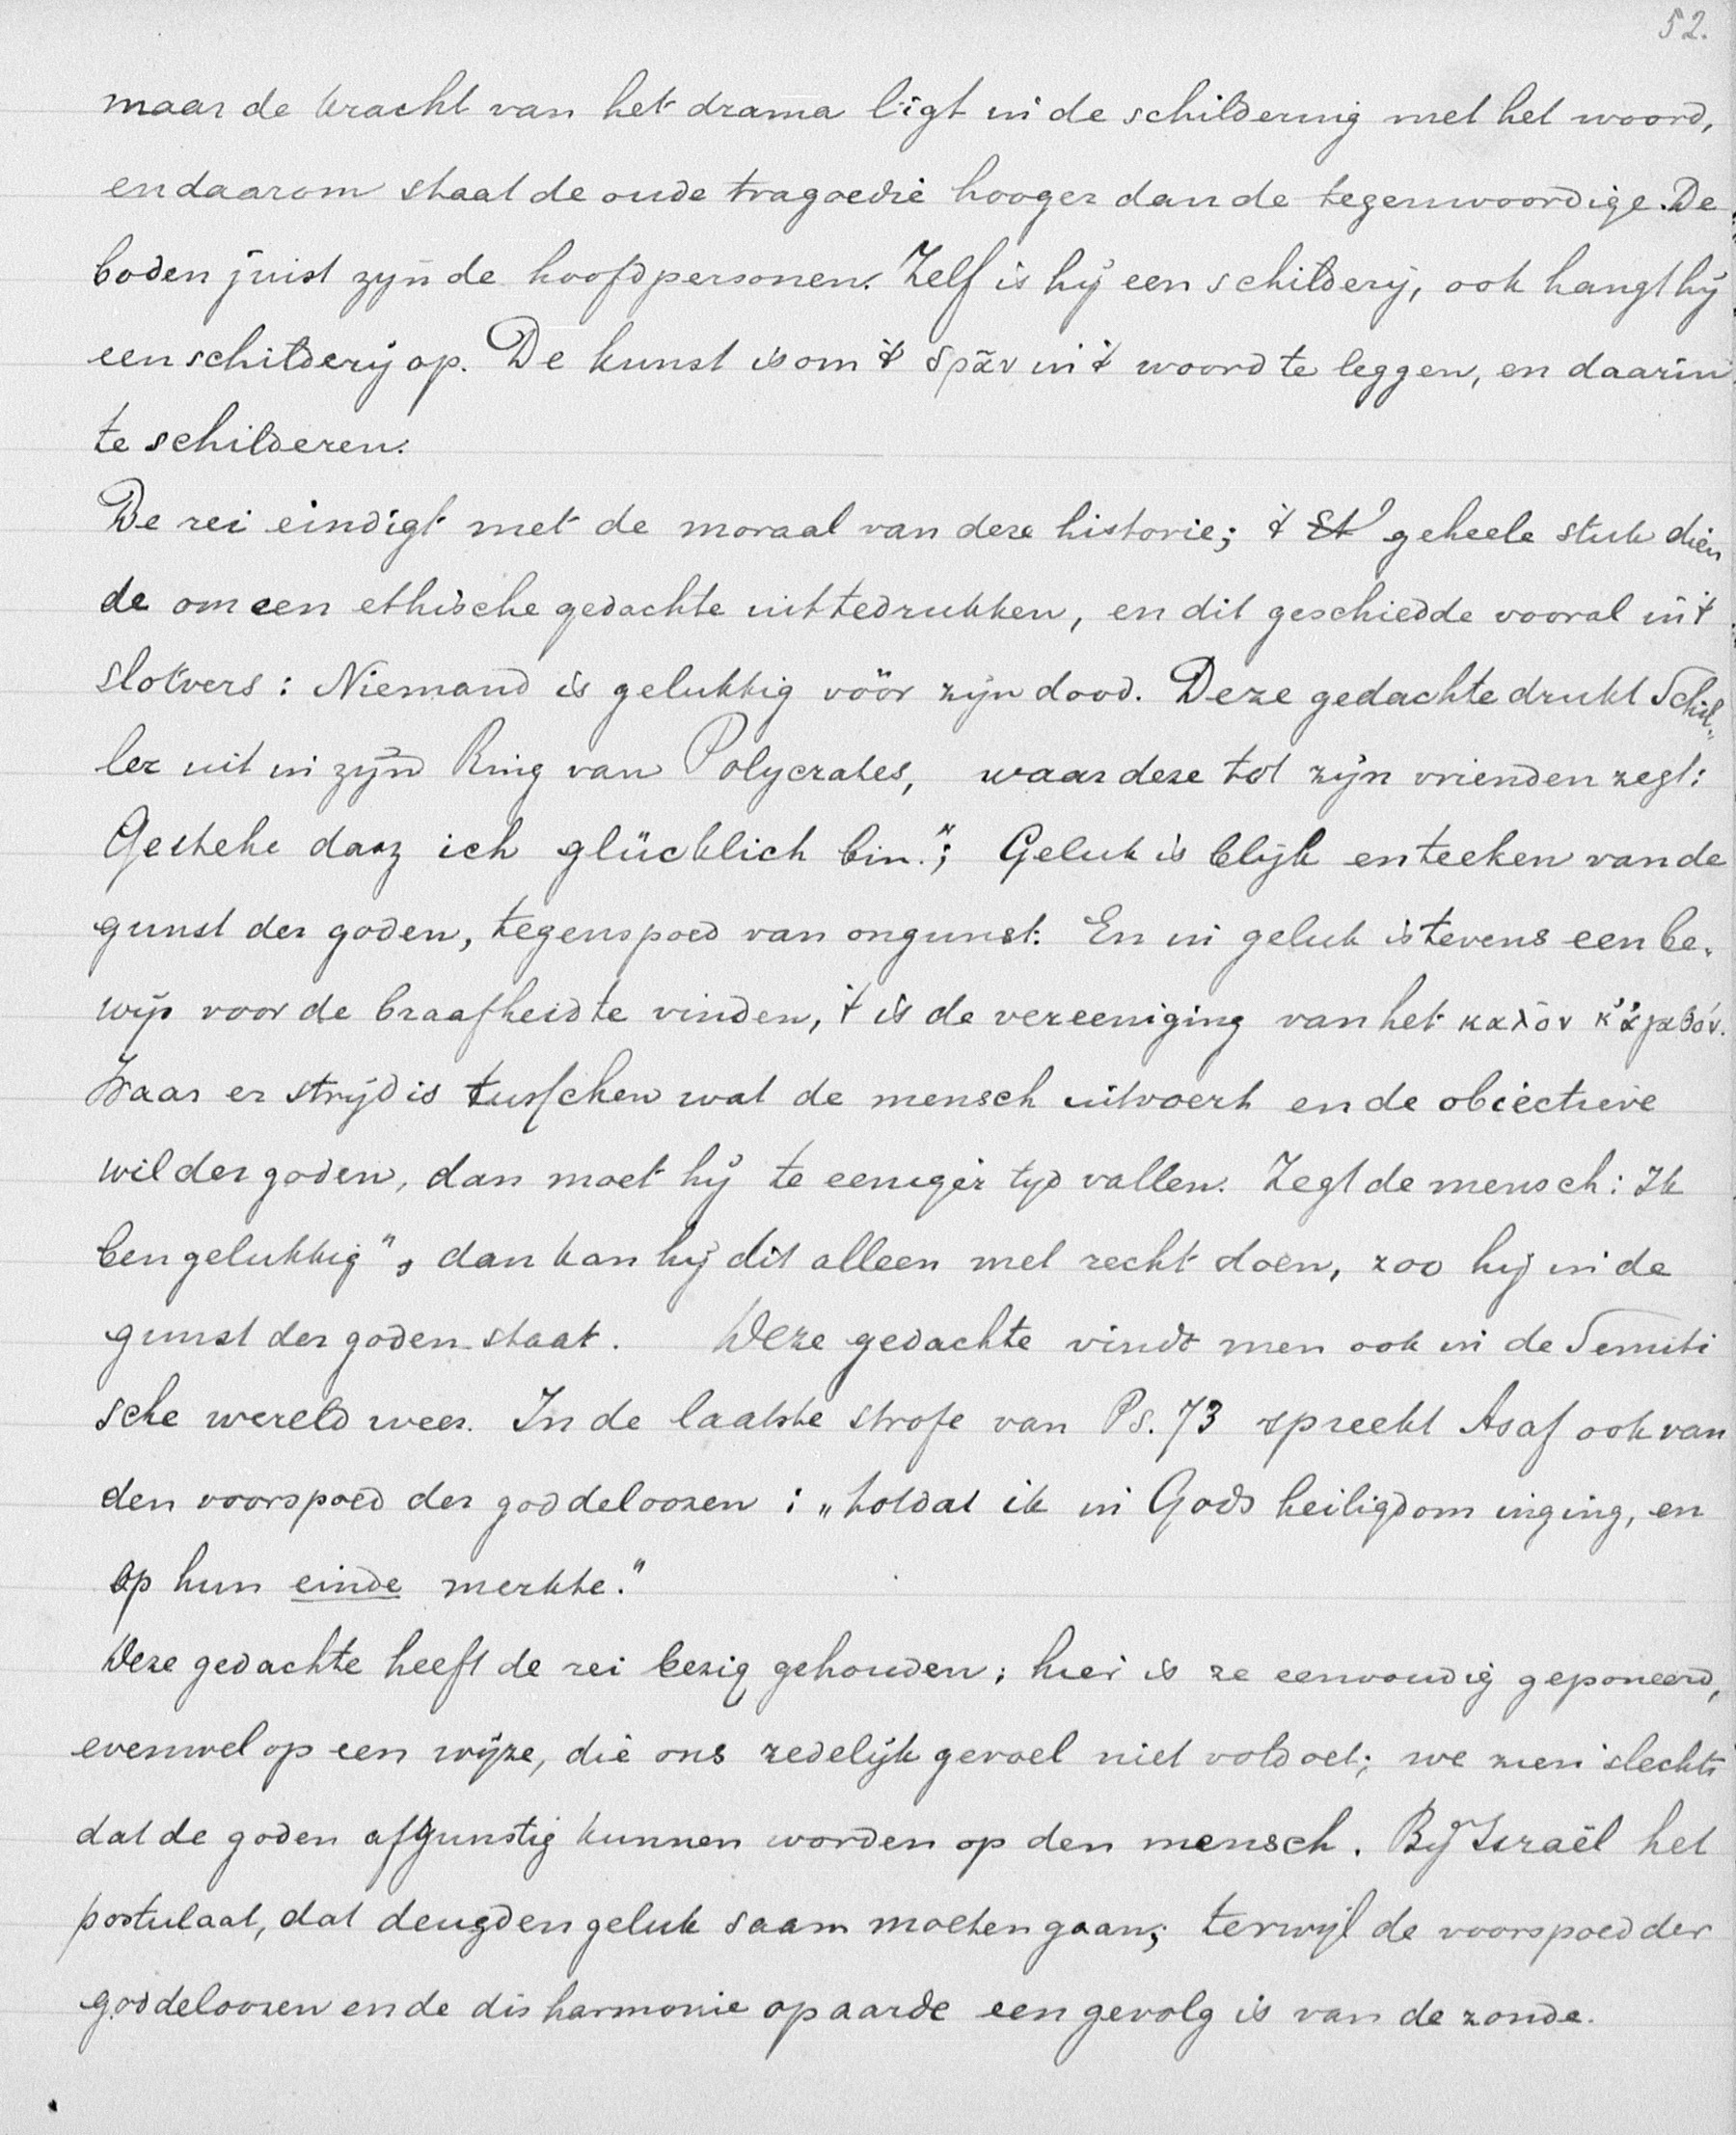 52.
maar de kracht van het drama ligt in de schildering met het woord,
en daarom staat de oude tragoedie hooger dan de tegenwoordige. De
boden juist zyn de hoofdpersonen. Zelf is hij een schilderij, ook hangt hij
een schilderij op. De kunst is om 't δρᾶν in 't woord te leggen, en daarin
te schilderen.
De rei eindigt met de moraal van deze historie; 't geheele stuk dien
de om een ethische gedachte uittedrukken, en dit geschiedde vooral in 't
slotvers: Niemand is gelukkig vöör zijn dood. Deze gedachte drukt Schil„
ler uit in zijn Ring van Polycrates, waar deze tot zijn vrienden zegt:
Gestehe dasz ich glücklich bin."; Geluk is blijk en teeken van de
gunst der goden, tegenspoed van ongunst. En in geluk is tevens een be-
wijs voor de braafheid te vinden, 't is de vereeniging van het καλὸν κ'ἀγαθόν.
Waar er strijd is tusschen wat de mensch uitvoert en de objectieve
wil der goden, dan moet hij te eeniger tyd vallen. Zegt de mensch: Ik
ben gelukkig", dan kan hij dit alleen met recht doen, zoo hij in de
gunst der goden staat. Deze gedachte vindt men ook in de Semiti
sche wereld weer. In de laatste strofe van Ps. 73 spreekt Asaf ook van
den voorspoed der goddeloozen: „totdat ik in Gods heiligdom inging, en
op hun einde merkte."
Deze gedachte heeft de rei bezig gehouden; hier is ze eenvoudig geponeerd,
evenwel op een wijze, die ons zedelijk gevoel niet voldoet; we zien slechts
dat de goden afgunstig kunnen worden op den mensch. Bij Israël het
postulaat, dat deugd en geluk saam moeten gaan; terwijl de voorspoed der
goddeloozen en de disharmonie op aarde een gevolg is van de zonde.